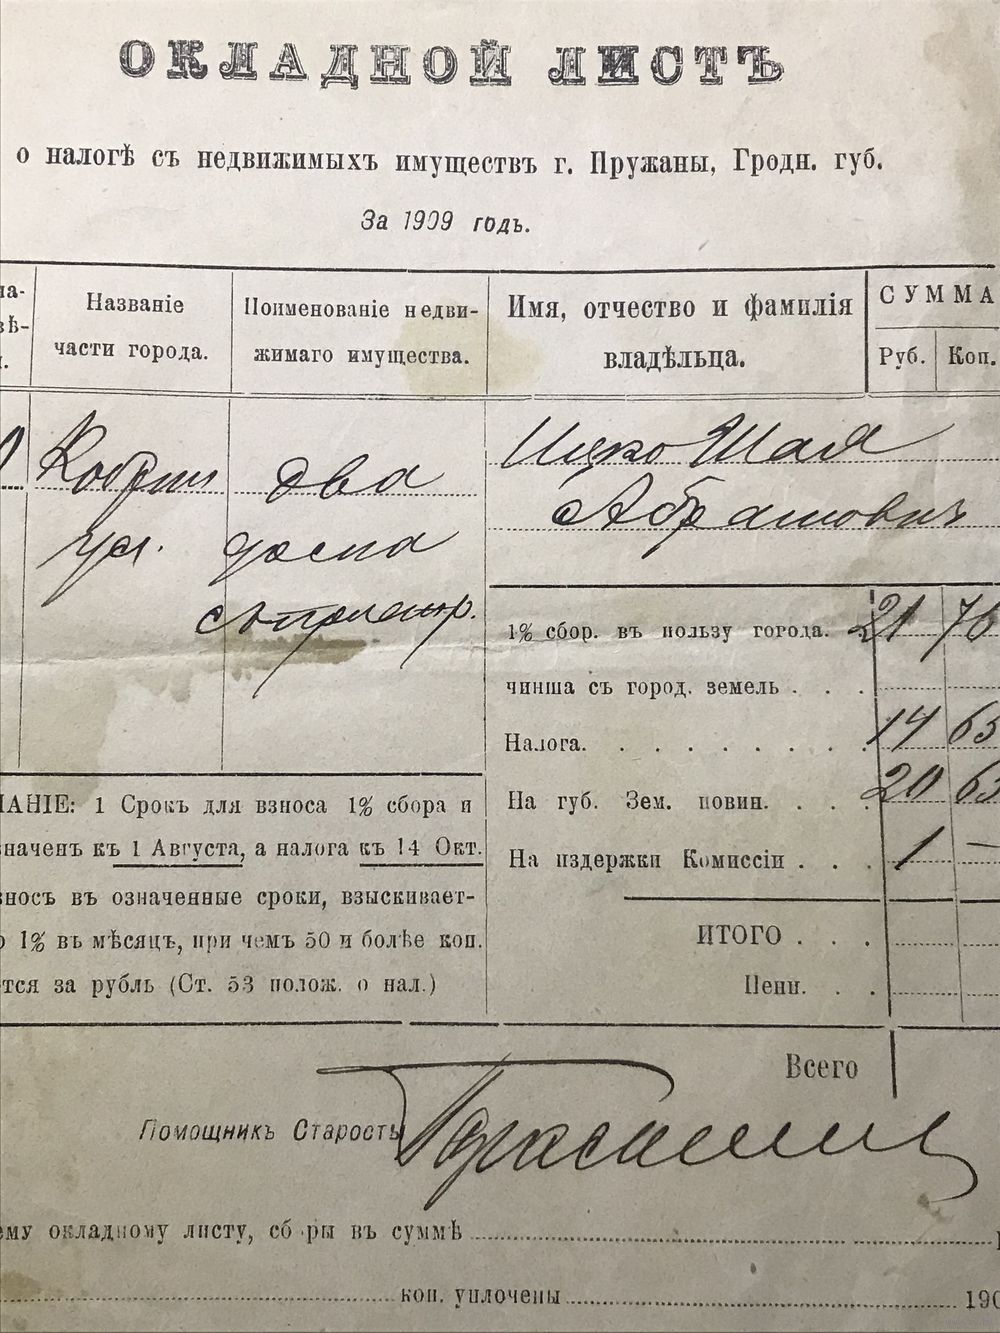 ОКЛАДНОЙ ЛИСТЪ
о налогѣ съ недвижимыхъ имуществъ г. Пружаны, Гродн. губ.
За 1909 годъ.
Названіе
части города.
Поименованіе недви-
жимаго имущества.
Имя, отчество и фамилія
владѣльца.
СУММА
Руб. Коп.
Кобрин
ул.
два
дома
Ицко Шая
Абрамович
1% сбор. въ пользу города. 21 76
чинша съ город. земель . . .
Налога. . . . . . . . . . 14 65
На губ. Зем. повин. . . . 20 63
На издержки Комиссіи . . . 1 —
ИТОГО . . .
Пени. . .
Всего
НАНІЕ: 1 Срокъ для взноса 1% сбора и
значенъ къ 1 Августа, а налога къ 14 Окт.
зносъ въ означенные сроки, взыскивает-
о 1% въ мѣсяцъ, при чемъ 50 и болѣе коп.
тся за рубль (Ст. 53 полож. о нал.)
Помощникъ Старосты
ему окладному листу, сборы въ суммѣ
коп. уплочены 190